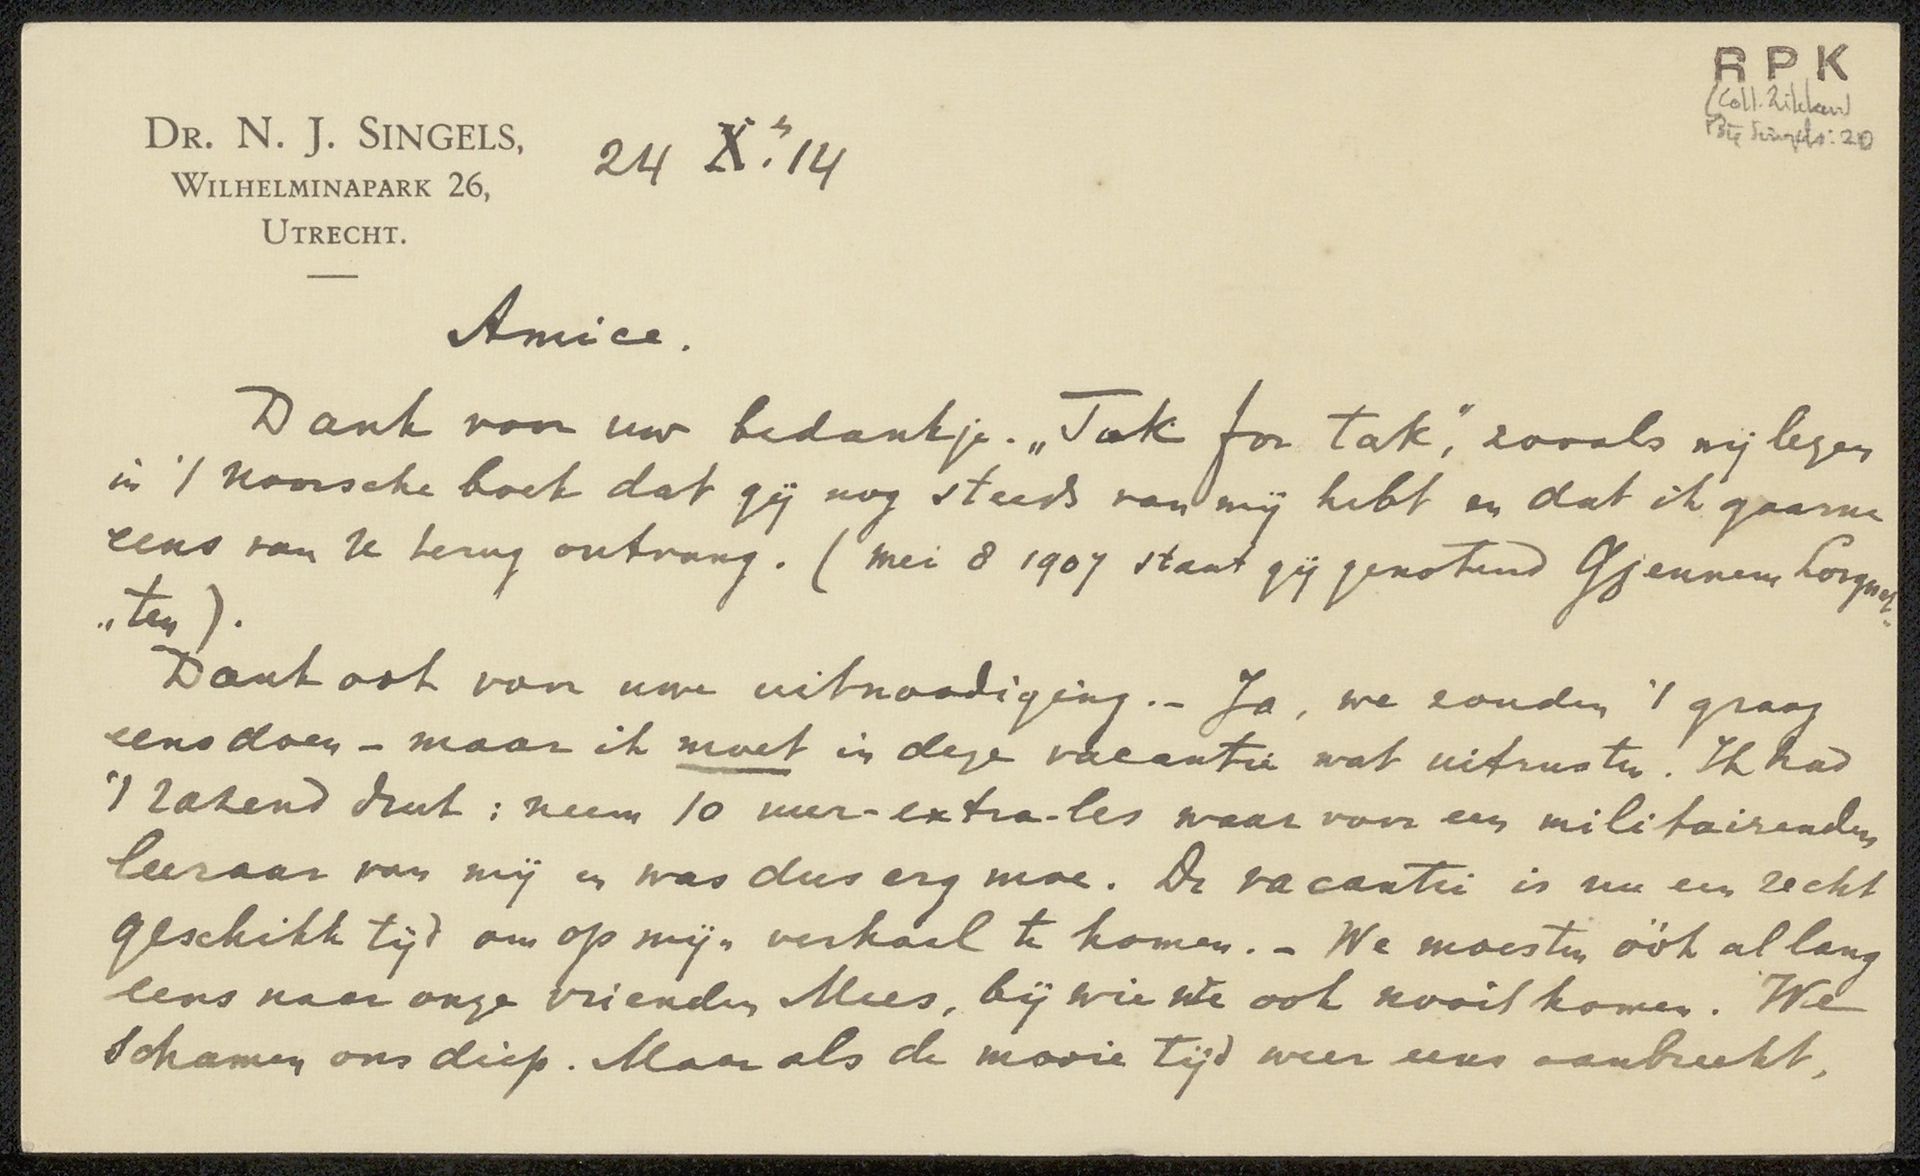 RPK
(Coll. Zilcken
Br Singels: 20
DR. N. J. SINGELS,
WILHELMINAPARK 26,
UTRECHT.
24 X '14
Amice.
Dank voor uw bedankje. „Tak for tak", zooals wij lezen
in 't Noorsche boek dat gij nog steeds van mij hebt en dat ik gaarne
eens van U terug ontvang. (Mei 8 1907 staat gij genoteerd Gjennem Lorgnet-
„ten).
Dank ook voor uwe uitnoodiging. – Ja, we zouden 't graag
eens doen – maar ik moet in deze vacantie wat uitrusten. Ik had
't razend druk: neem 10 uur-extra-les waar voor een militairenden
leeraar van mij en was dus erg moe. De vacantie is nu een recht
geschikte tijd om op mijn verhaal te komen. – We moesten óók al lang
eens naar onze vrienden Mees, bij wie we ook nooit komen. We
schamen ons diep. Maar als de mooie tijd weer eens aanbreekt,